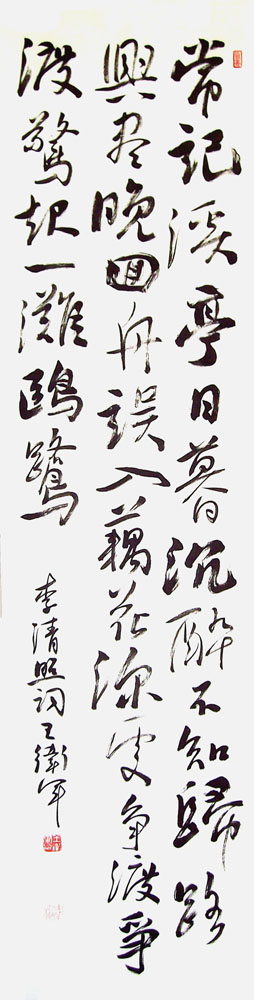 常記溪亭日暮沉醉不知歸路
興盡晚回舟誤入藕花深處爭渡爭
渡驚起一灘鷗鷺
李清照詞王衛軍